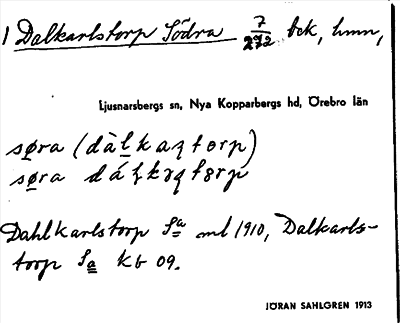 1 Dalkarlstorp Södra 7/272 bek, hmn,
Ljusnarsbergs sn, Nya Kopparbergs hd, Örebro län
søra (dàlkaqtorp)
søra
Dahlkarlstorp Sa ml 1910, Dalkarls-
torp Sa Kb 09.
JÖRAN SAHLGREN 1913